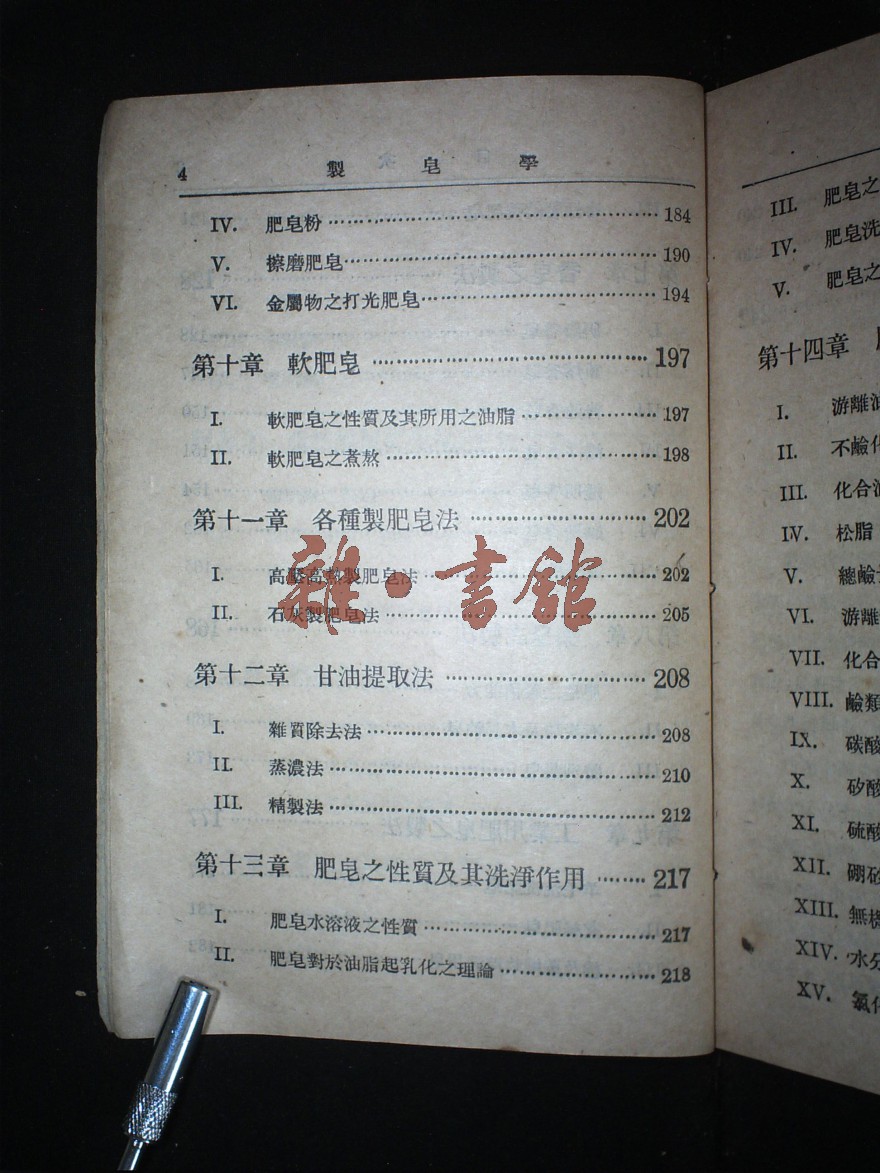 4 製皂學
IV. 肥皂粉 184
V. 擦磨肥皂 190
VI. 金屬物之打光肥皂 194
第十章 軟肥皂 197
I. 軟肥皂之性質及其所用之油脂 197
II. 軟肥皂之煮熬 198
第十一章 各種製肥皂法 202
I. 高壓高熱製肥皂法 202
II. 石灰製肥皂法 205
第十二章 甘油提取法 208
I. 雜質除去法 208
II. 蒸濃法 210
III. 精製法 212
第十三章 肥皂之性質及其洗淨作用 217
I. 肥皂水溶液之性質 217
II. 肥皂對於油脂起乳化之理論 218
雜·書館
III. 肥皂之
IV. 肥皂洗
V. 肥皂之
第十四章
I. 游離油
II. 不鹼化
III. 化合油
IV. 松脂
V. 總鹼
VI. 游離
VII. 化合
VIII. 鹼類
IX. 碳酸
X. 矽酸
XI. 硫酸
XII. 硼砂
XIII. 無機
XIV. 水分
XV. 氯化